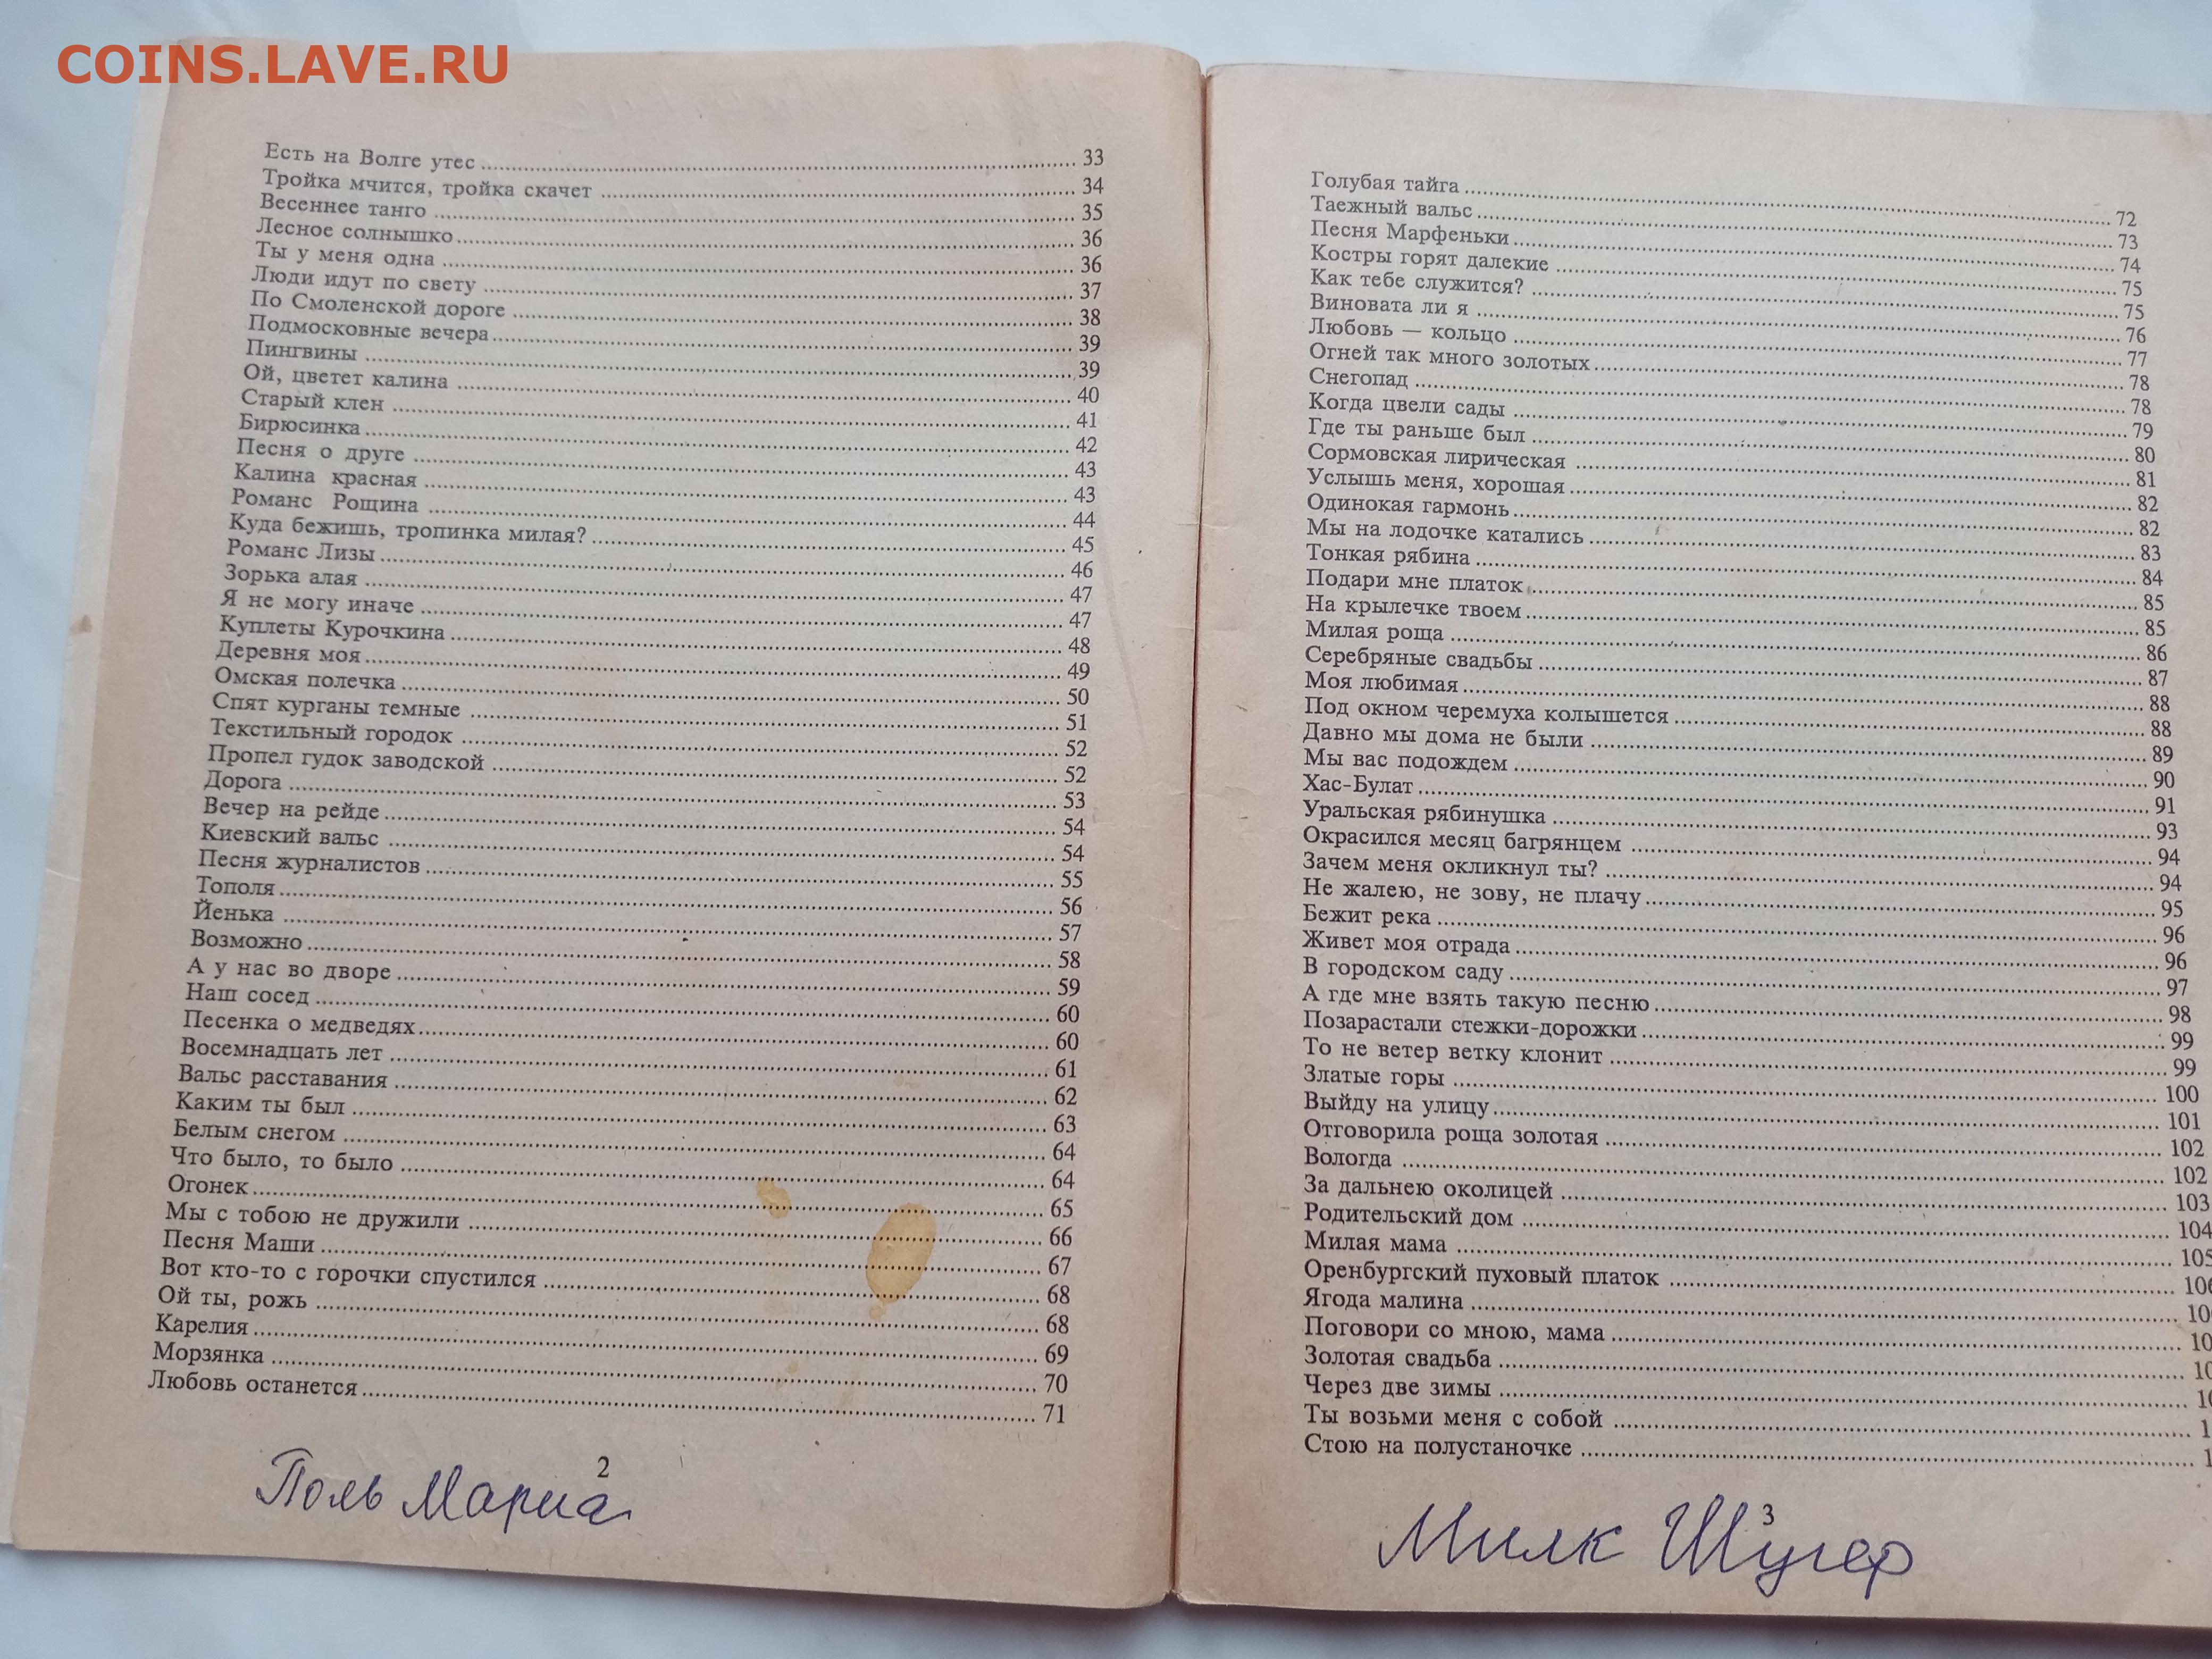 COINS.LAVE.RU
Есть на Волге утес 33
Тройка мчится, тройка скачет 34
Весеннее танго 35
Лесное солнышко 36
Ты у меня одна 36
Люди идут по свету 37
По Смоленской дороге 38
Подмосковные вечера 39
Пингвины 39
Ой, цветет калина 40
Старый клен 41
Бирюсинка 42
Песня о друге 43
Калина красная 43
Романс Рощина 44
Куда бежишь, тропинка милая? 45
Романс Лизы 46
Зорька алая 47
Я не могу иначе 47
Куплеты Курочкина 48
Деревня моя 49
Омская полечка 50
Спят курганы темные 51
Текстильный городок 52
Пропел гудок заводской 52
Дорога 53
Вечер на рейде 54
Киевский вальс 54
Песня журналистов 55
Тополя 56
Йенька 57
Возможно 58
А у нас во дворе 59
Наш сосед 60
Песенка о медведях 60
Восемнадцать лет 61
Вальс расставания 62
Каким ты был 63
Белым снегом 64
Что было, то было 64
Огонек 65
Мы с тобою не дружили 66
Песня Маши 67
Вот кто-то с горочки спустился 68
Ой ты, рожь 68
Карелия 69
Морзянка 70
Любовь останется 71
2
Поль Мариа
Голубая тайга 72
Таежный вальс 73
Песня Марфеньки 74
Костры горят далекие 75
Как тебе служится? 75
Виновата ли я 76
Любовь — кольцо 77
Огней так много золотых 78
Снегопад 78
Когда цвели сады 79
Где ты раньше был 80
Сормовская лирическая 81
Услышь меня, хорошая 82
Одинокая гармонь 82
Мы на лодочке катались 83
Тонкая рябина 84
Подари мне платок 85
На крылечке твоем 85
Милая роща 86
Серебряные свадьбы 87
Моя любимая 88
Под окном черемуха колышется 88
Давно мы дома не были 89
Мы вас подождем 90
Хас-Булат 91
Уральская рябинушка 93
Окрасился месяц багрянцем 94
Зачем меня окликнул ты? 94
Не жалею, не зову, не плачу 95
Бежит река 96
Живет моя отрада 96
В городском саду 97
А где мне взять такую песню 98
Позарастали стежки-дорожки 99
То не ветер ветку клонит 99
Златые горы 100
Выйду на улицу 101
Отговорила роща золотая 102
Вологда 102
За дальнею околицей 103
Родительский дом 104
Милая мама 105
Оренбургский пуховый платок 106
Ягода малина 10
Поговори со мною, мама 10
Золотая свадьба 10
Через две зимы 10
Ты возьми меня с собой 1
Стою на полустаночке 1
3
Милк Шугер